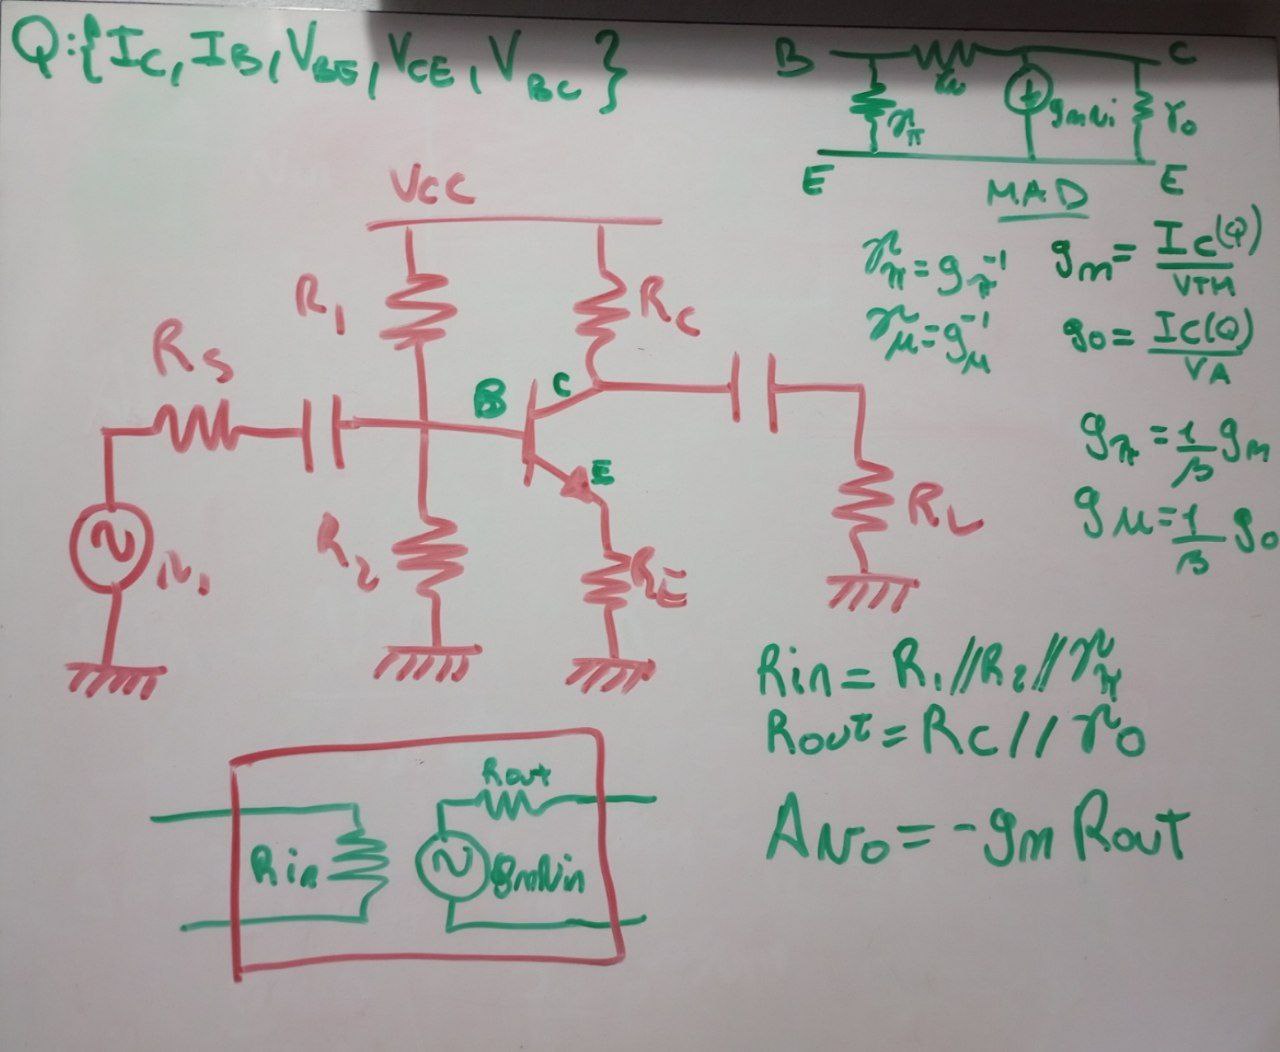 Q:{IC, IB, VBE, VCE, VBC}
B
rμ
C
rπ
gmvi
ro
E
E
MAD
rπ = gπ⁻¹
gm = IC(Q)/VTH
rμ = gμ⁻¹
go = IC(Q)/VA
gπ = 1/β gm
gμ = 1/β go
VCC
R1
RC
RS
B
C
E
R2
RE
RL
Rin = R1//R2//rπ
Rout = RC//ro
Avo = -gm Rout
Rout
Rin
gmvin